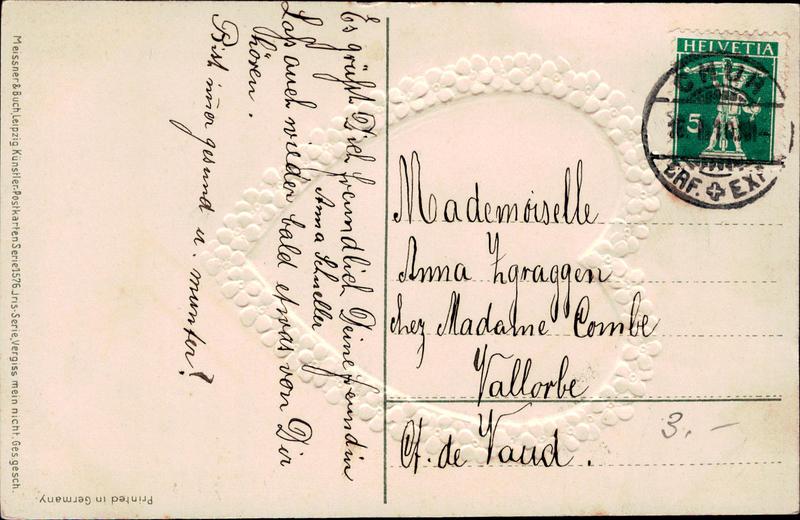 Es grüßt Dich freundlich Deine Freundin
Anna Schneller
Laß auch wieder bald etwas von Dir
hören.
Bist immer gesund u. munter?
HELVETIA
5
CHUR
BRF. EXP.
Mademoiselle
Anna Zgraggen
chez Madame Combe
Vallorbe
Ct. de Vaud.
3.-
Meissner & Buch, Leipzig Künstler-Postkarten Serie 1576. Iris-Serie, Vergiss mein nicht. Ges. gesch.
Printed in Germany